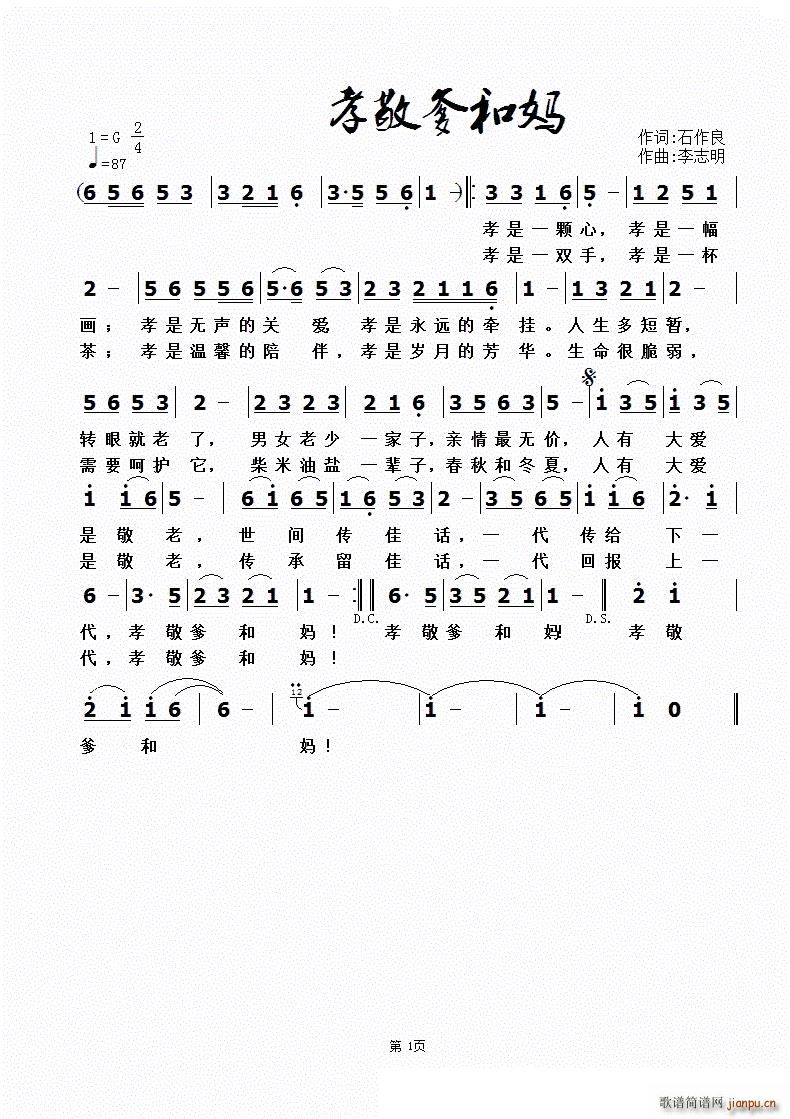 孝敬爹和妈
1=G 2/4
作词:石作良
♩=87
作曲:李志明
(6 5 6 5 3 | 3 2 1 6 | 3· 5 5 6 | 1 -) |: 3 3 1 6 | 5 - | 1 2 5 1 |
孝是一颗心，孝是一幅
孝是一双手，孝是一杯
2 - | 5 6 5 5 5 6 | 5· 6 5 3 | 2 3 2 1 1 6 | 1 - | 1 3 2 1 | 2 - |
画；孝是无声的关 爱，孝是永远的牵 挂。人生多短暂，
茶；孝是温馨的陪 伴，孝是岁月的芳 华。生命很脆弱，
5 6 5 3 | 2 - | 2 3 2 3 | 2 1 6 | 3 5 6 3 | 5 - | i 3 5 | i 3 5 |
转眼就老 了，男女老少 一家子，亲情最无价，人有 大爱
需要呵护 它，柴米油盐 一辈子，春秋和冬夏，人有 大爱
i i 6 | 5 - | 6 i 6 5 | 1 6 5 3 | 2 - | 3 5 6 5 | i i 6 | 2· i |
是 敬 老，世 间 传 佳 话，一 代 传给 下一
是 敬 老，传 承 留 佳 话，一 代 回报 上一
6 - | 3· 5 | 2 3 2 1 | 1 - :|| 6· 5 | 3 5 2 1 | 1 - || 2 i |
D.C. D.S.
代，孝 敬爹 和 妈！ 孝 敬爹 和 妈！ 孝 敬
代，孝 敬爹 和 妈！
2 i i 6 | 6 - | 12 i - | i - | i - | i 0 ||
爹 和 妈！
第 1页
歌谱简谱网
jianpu.cn